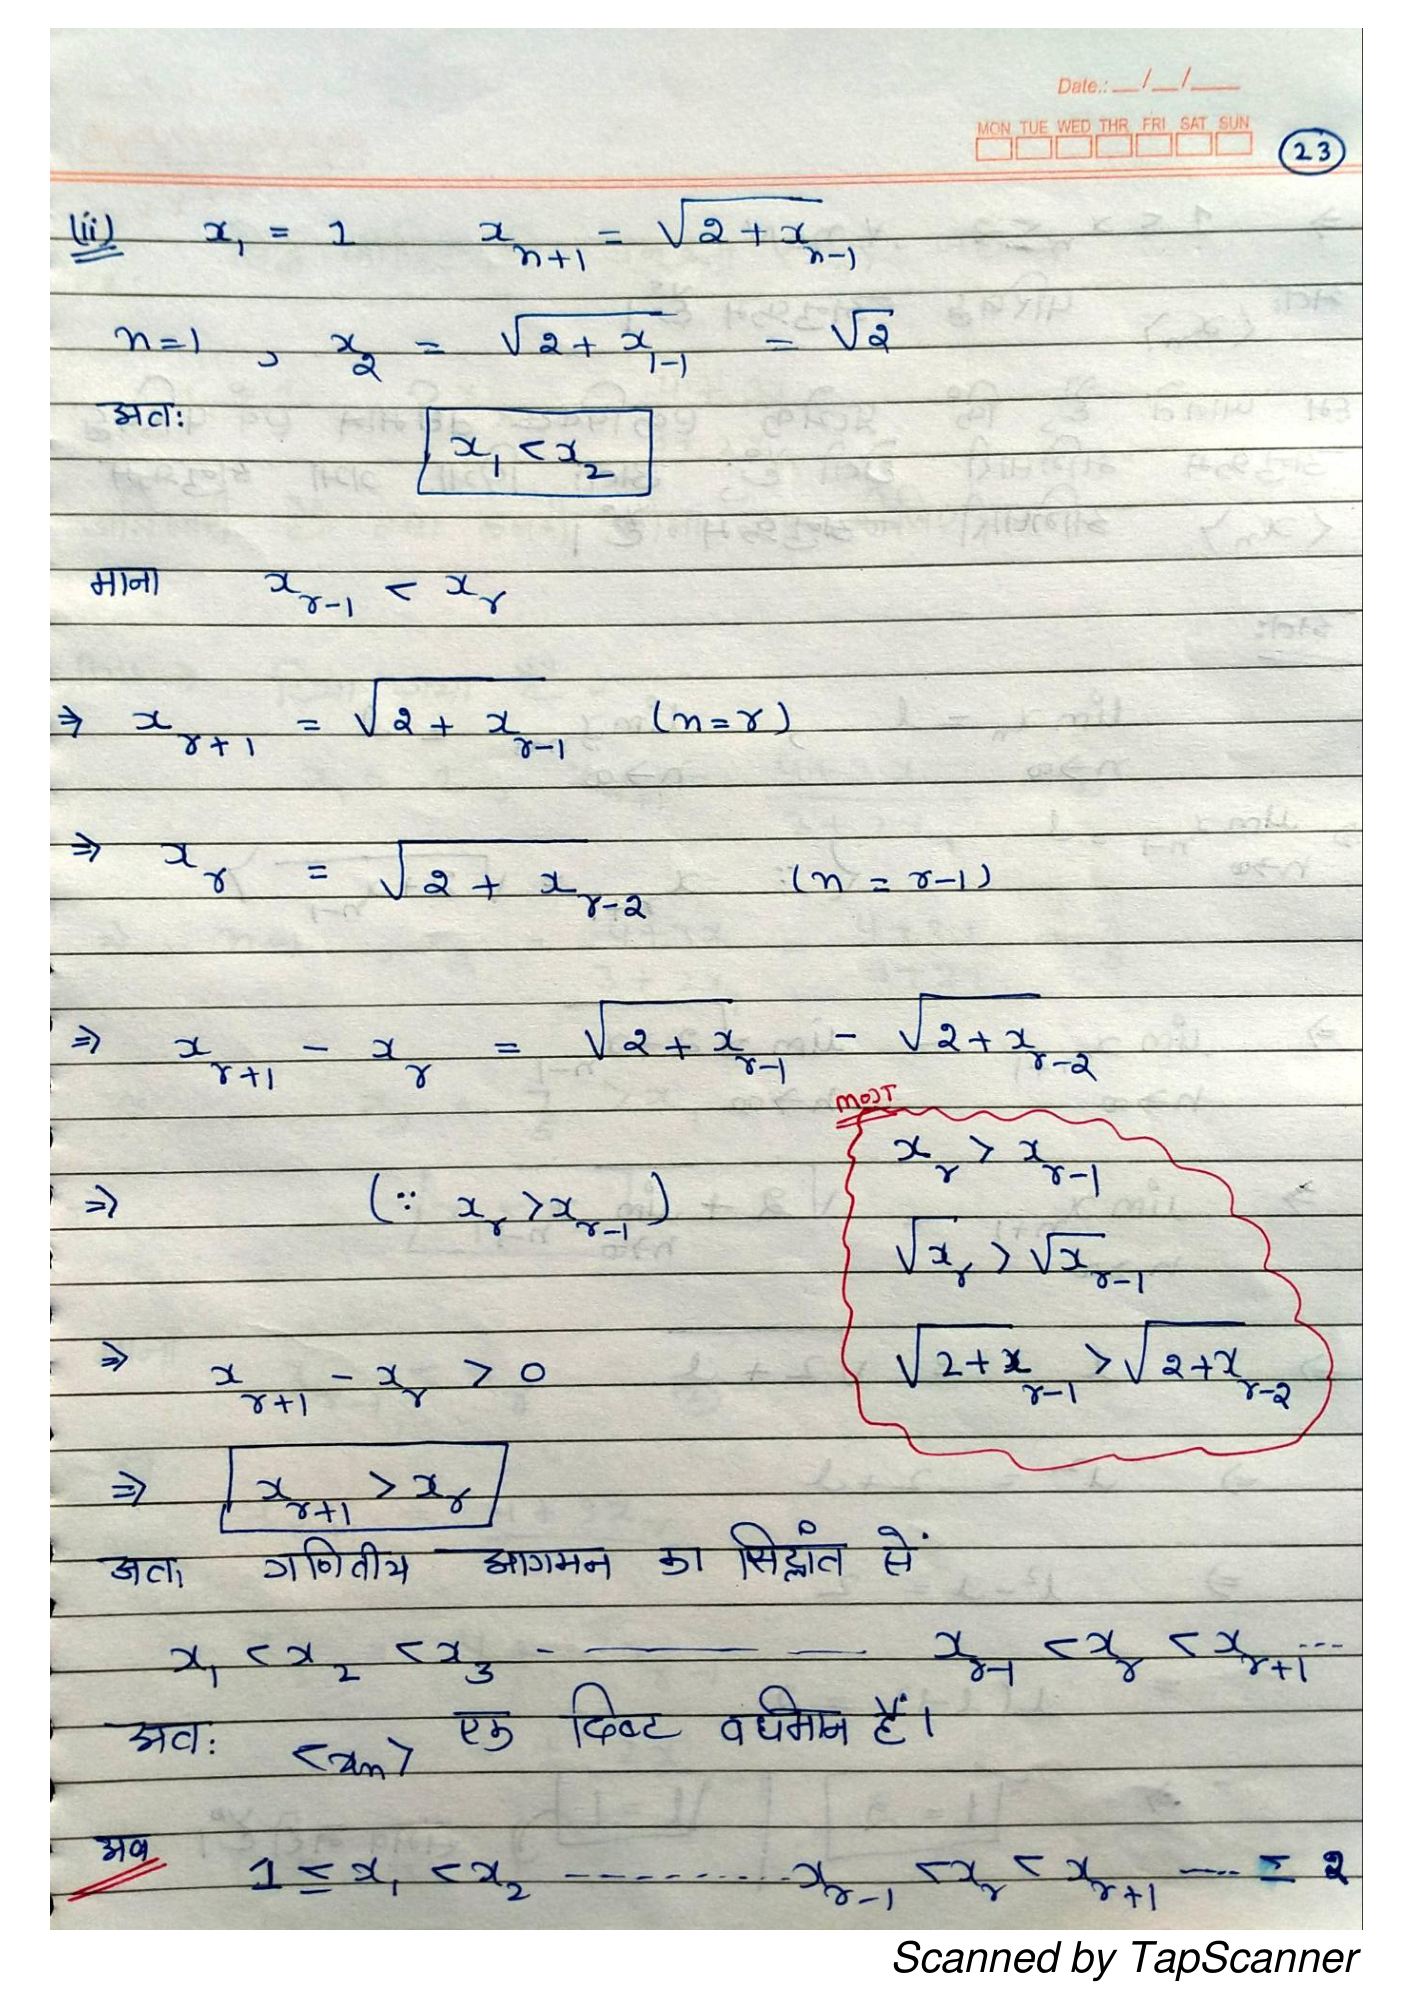 Date.: __/__/____
MON TUE WED THR FRI SAT SUN
23
(ii) x₁ = 1 xₙ₊₁ = √(2 + xₙ₋₁)
n=1 , x₂ = √(2 + x₁₋₁) = √2
अतः
x₁ < x₂
माना x_{r-1} < x_r
⇒ x_{r+1} = √(2 + x_{r-1}) (n=r)
⇒ x_r = √(2 + x_{r-2}) (n = r-1)
⇒ x_{r+1} - x_r = √(2 + x_{r-1}) - √(2 + x_{r-2})
most
x_r > x_{r-1}
⇒ (∵ x_r > x_{r-1})
√x_r > √x_{r-1}
√(2+x_{r-1}) > √(2+x_{r-2})
⇒ x_{r+1} - x_r > 0
⇒ x_{r+1} > x_r
अतः गणितीय आगमन का सिद्धांत सें
x₁ < x₂ < x₃ - ——— — x_{r-1} < x_r < x_{r+1} ---
अतः <xₙ> एक दिष्ट वर्धमान हैं।
अब 1 ≤ x₁ < x₂ ---------- x_{r-1} < x_r < x_{r+1} ---- ≤ 2
Scanned by TapScanner